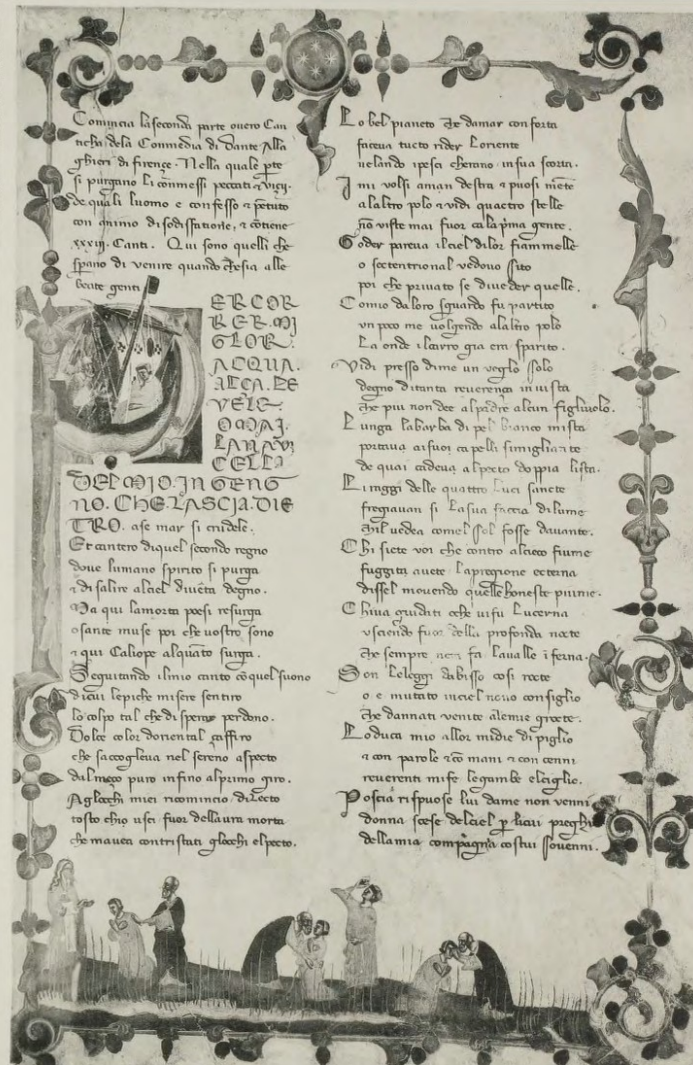 Comincia la seconda parte overo Can
ticha dela Commedia di Dante Alla
ghieri di firençe. Nella quale pte
si purgano li commessi peccati & viçij.
de quali luomo e confesso & pētuto
con animo di sodisfatione, & cōtiene
xxxiij. Canti. Qui sono quelli che
sperano di venire quando che sia alle
beate genti
ER COR
RER. MI
GLOR.
ACQUA.
ALÇA. LE
VELE.
OMAI.
LA NAVI
CELLA
DEL MIO. INGENG
NO. CHE. LASCIA. DIE
TRO. a se mar si crudele.
Et cantero di quel secondo regno
dove lumano spirito si purga
& di salire al ciel divēta degno.
Ma qui la morta poesi resurga
o sante muse poi che vostro sono
& qui Caliope alquāto surga.
Seguitando il mio canto cō quel suono
di cui le piche misere sentiro
lo colpo tal che disperar perdono.
Dolce color doriental çaffiro
che saccoglieva nel sereno aspecto
dal meço puro infino al primo giro.
Agliocchi miei ricomincio dilecto
tosto chio usci fuor dellaura morta
che mavea contristati gliocchi el pecto.
Lo bel pianeto che damar conforta
faceva tucto rider loriente
velando i pesci cherano in sua scorta.
I mi volsi a man destra & puosi mēte
a laltro polo & vidi quactro stelle
nō viste mai fuor ca la pima gente.
Goder pareva il ciel di lor fiammelle
o sectentrional vedovo sito
poi che privato se di veder quelle.
Comio da loro sguardo fu partito
un poco me volgendo a laltro polo
La onde il carro gia era sparito.
Vidi presso di me un veglo solo
degno di tanta reverença in vista
che piu non dee al padre alcun figliuolo.
Lunga la barba di pel bianco mista
portava a i suoi capelli simigliāte
de quai cadeva al pecto doppia lista.
Li raggi delle quattro luci sancte
fregiavan si la sua faccia di lume
chil vedea comel sol fosse davante.
Chi siete voi che contro al cieco fiume
fuggita avete la pregione ecterna
dissel movendo quelle honeste piume.
Chi va guidati o che vi fu lucerna
uscendo fuor della profonda nocte
che sempre nera fa la valle īferna.
Son le leggi dabisso cosi rocte
o e mutato in ciel novo consiglio
che dannati venite a le mie grocte.
Lo duca mio allor mi die di piglio
& con parole & cō mani & con cenni
reverenti mi fe le gambe el ciglio.
Poscia rispuose lui da me non venni
donna scese del ciel p li cui preghi
della mia compagnia costui sovenni.